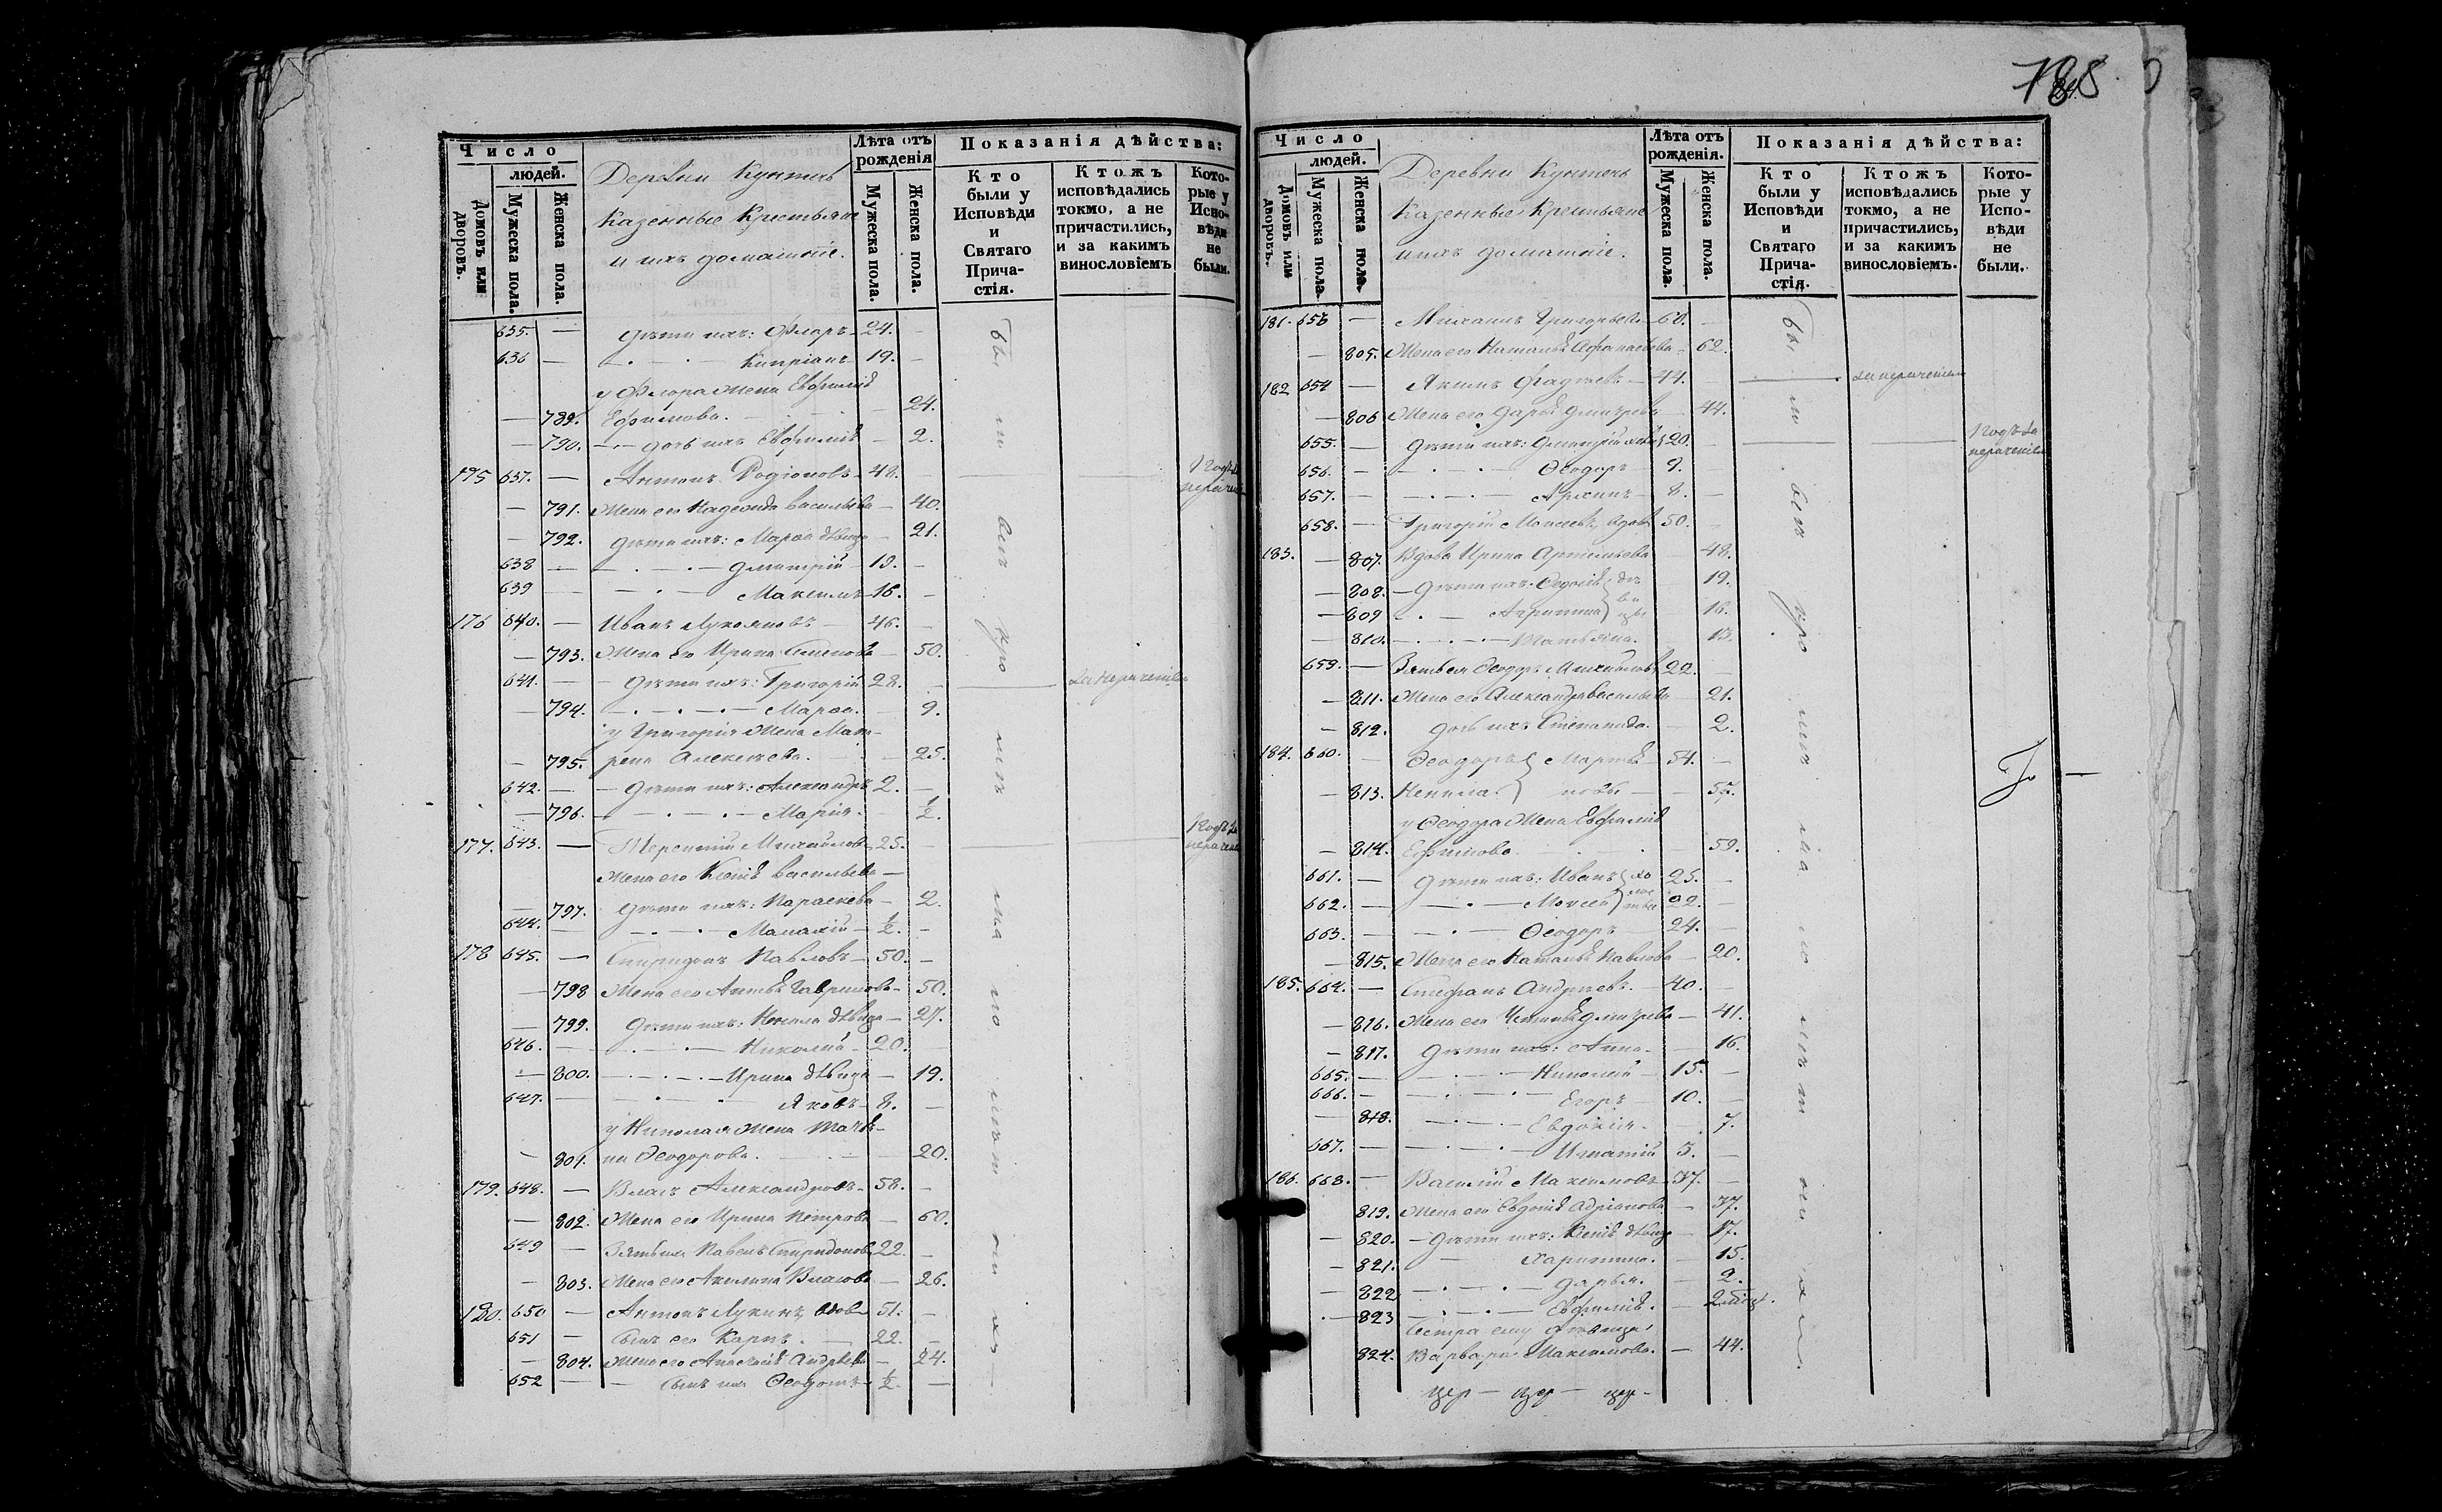 Число
людей.
Домовъ или дворовъ.
Мужеска пола.
Женска пола.
Деревни Кунтечь
Казенные Крестьяне
и ихъ домашніе.
Лѣта отъ рожденія
Мужеска пола.
Женска пола.
Показанія дѣйства:
Кто были у Исповѣди и Святаго Причастія.
Ктожъ исповѣдались токмо, а не причастились, и за какимъ винословіемъ
Которые у Исповѣди не были.
635. — дѣти ихъ: Флоръ 24. —
636 — Кипріанъ 19. —
у Флора Жена Евфимія
— 789. Ефимова. — 24.
— 790. дочь ихъ Евфимія — 2.
175 637. — Антонъ Родіоновъ 48. —
— 791. Жена его Васильева — 40.
— 792. дѣти ихъ: Марѳа дѣвица — 21.
638 — Дмитрій 19. —
639 — Максимъ 16. —
176 640. — Иванъ Лукояновъ 46. —
— 793. Жена его Ирина Семенова — 50.
641. — дѣти ихъ: Григорій 28. —
— 794. Марѳа. — 9.
у Григорія Жена Мат-
— 795. рена Алексѣева. — 25.
642. — дѣти ихъ: Александръ 2. —
— 796. Марія. — ½.
177. 643. — Терентій Михайловъ 25. —
Жена его Ксенія Васильева —
— 797. дѣти ихъ: Параскева — 2.
644. — ½. —
178 645. — Спиридонъ Павловъ 50. —
— 798 Жена его Гаврилова — 50.
— 799. дѣти ихъ: Ненила дѣвица — 27.
646. — Николай 20. —
— 800. Ирина дѣвица — 19.
647. — Яковъ 8. —
у Николая Жена Татья-
— 801. на Ѳеодорова. — 20.
179. 648. — Власъ Александровъ 58. —
— 802. Жена его Ирина Петрова — 60.
649 — Зять его Павелъ Спиридоновъ 22. —
— 803. Жена его Акилина Власова — 26.
180. 650 — Антонъ Лукинъ, вдовъ 51. —
651 — Сынъ его Карпъ. 22. —
— 804. Жена его Анастасія Андреева — 24.
652 — Сынъ ихъ Ѳеодотъ ½. —
185
Число
людей.
Домовъ или дворовъ.
Мужеска пола.
Женска пола.
Деревни Кунтечь
Казенные Крестьяне
и ихъ домашніе.
Лѣта отъ рожденія.
Мужеска пола.
Женска пола.
Показанія дѣйства:
Кто были у Исповѣди и Святаго Причастія.
Ктожъ исповѣдались токмо, а не причастились, и за какимъ винословіемъ.
Которые у Исповѣди не были.
181. 653 — Михаилъ Григорьевъ 60. —
— 805. Жена его Наталія Афанасьева 62.
182 654 — Якимъ Фадѣевъ 44. —
— 806 Жена его Дарія Дмитрева 44.
655. — дѣти ихъ: Дмитрій 20. —
656. — Ѳеодоръ 9. —
657. — Архипъ 8. —
658. — Григорій Моисеевъ, вдовъ 50. —
183. — 807. Вдова Ирина Артемьева 48.
— 808. дѣти ихъ: Ѳедосія дѣ- 19.
— 809 Агрипина вицы 16.
— 810. Татьяна. 13.
659. — Зять ея Ѳеодоръ Михайловъ 22. —
— 811. Жена его Александра Васильева 21.
— 812. дочь ихъ Степанида. 2.
184. 660. — Ѳеодоръ Марты- 54. —
— 813. Ненила новы — 55.
у Ѳеодора Жена Евфимія
— 814. Ефимова. 59.
661. — дѣти ихъ: Иванъ хо- 25. —
662. — Моисей лостые 22. —
663. — Ѳеодоръ 24. —
— 815. Жена его Наталія Павлова — 20.
185. 664. — Стефанъ Андреевъ. 40. —
— 816. Жена его Устинія Дмитрева — 41.
— 817. дѣти ихъ: Анна. — 16.
665. — Николай 15. —
666. — Егоръ 10. —
— 818. Евдокія. 7.
667. — Игнатій 5. —
186. 668. — Василій Максимовъ 37. —
819. Жена его Евдокія Адріанова — 37.
— 820. дѣти ихъ: Ксенія дѣвица — 17.
— 821. Харитина. — 15.
— 822 Дарья. — 2.
— 823 Евфимія. —
Сестра ему дѣвица
824. Варвара Максимова. — 44.